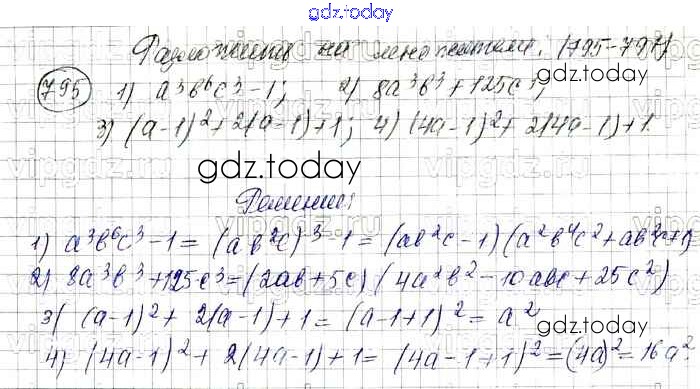 gdz.today
Разложить на множители. (795-797)
795 1) a³b⁶c³-1; 2) 8a³b³+125c³;
3) (a-1)²+2(a-1)+1; 4) (4a-1)²+2(4a-1)+1.
gdz.today
gdz.today
Решение:
1) a³b⁶c³-1=(ab²c)³-1=(ab²c-1)(a²b⁴c²+ab²c+1)
2) 8a³b³+125c³=(2ab+5c)(4a²b²-10abc+25c²)
3) (a-1)²+2(a-1)+1=(a-1+1)²=a²
gdz.today
4) (4a-1)²+2(4a-1)+1=(4a-1+1)²=(4a)²=16a²